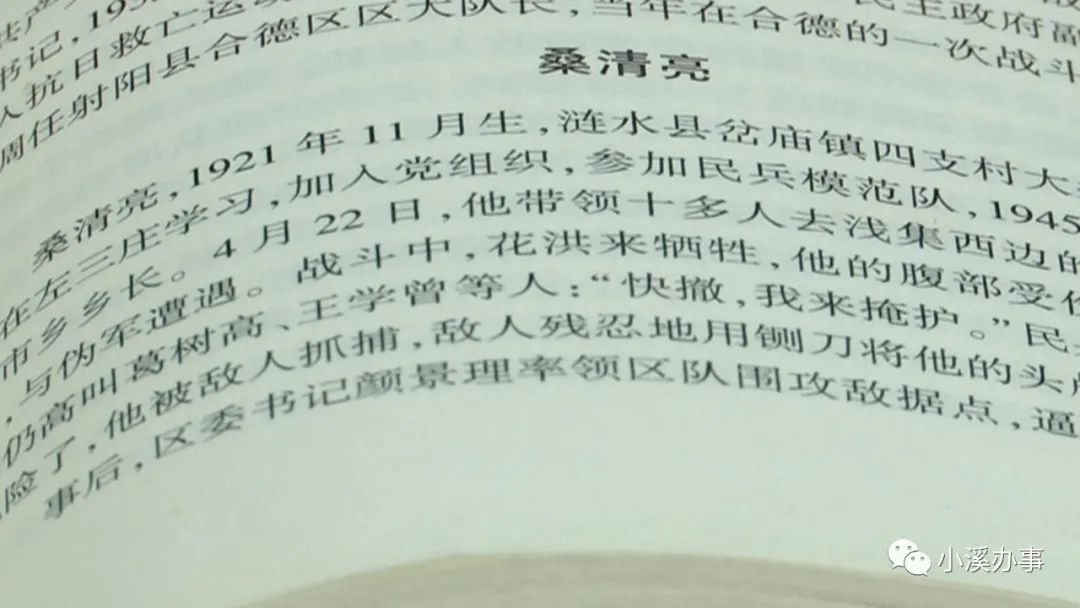 共产
书记，193
人抗日救亡运动 民主政府副
周任射阳县合德区区大队长，当年在合德的一次战斗
桑清亮
桑清亮，1921 年 11 月生，涟水县岔庙镇四支村大
在左三庄学习，加入党组织，参加民兵模范队，1945
市乡乡长。4 月 22 日，他带领十多人去浅集西边的
，与伪军遭遇。战斗中，花洪来牺牲，他的腹部受伤
仍高叫葛树高、王学曾等人：“快撤，我来掩护。”民
险了，他被敌人抓捕，敌人残忍地用铡刀将他的头
事后，区委书记颜景理率领区队围攻敌据点，逼
小溪办事